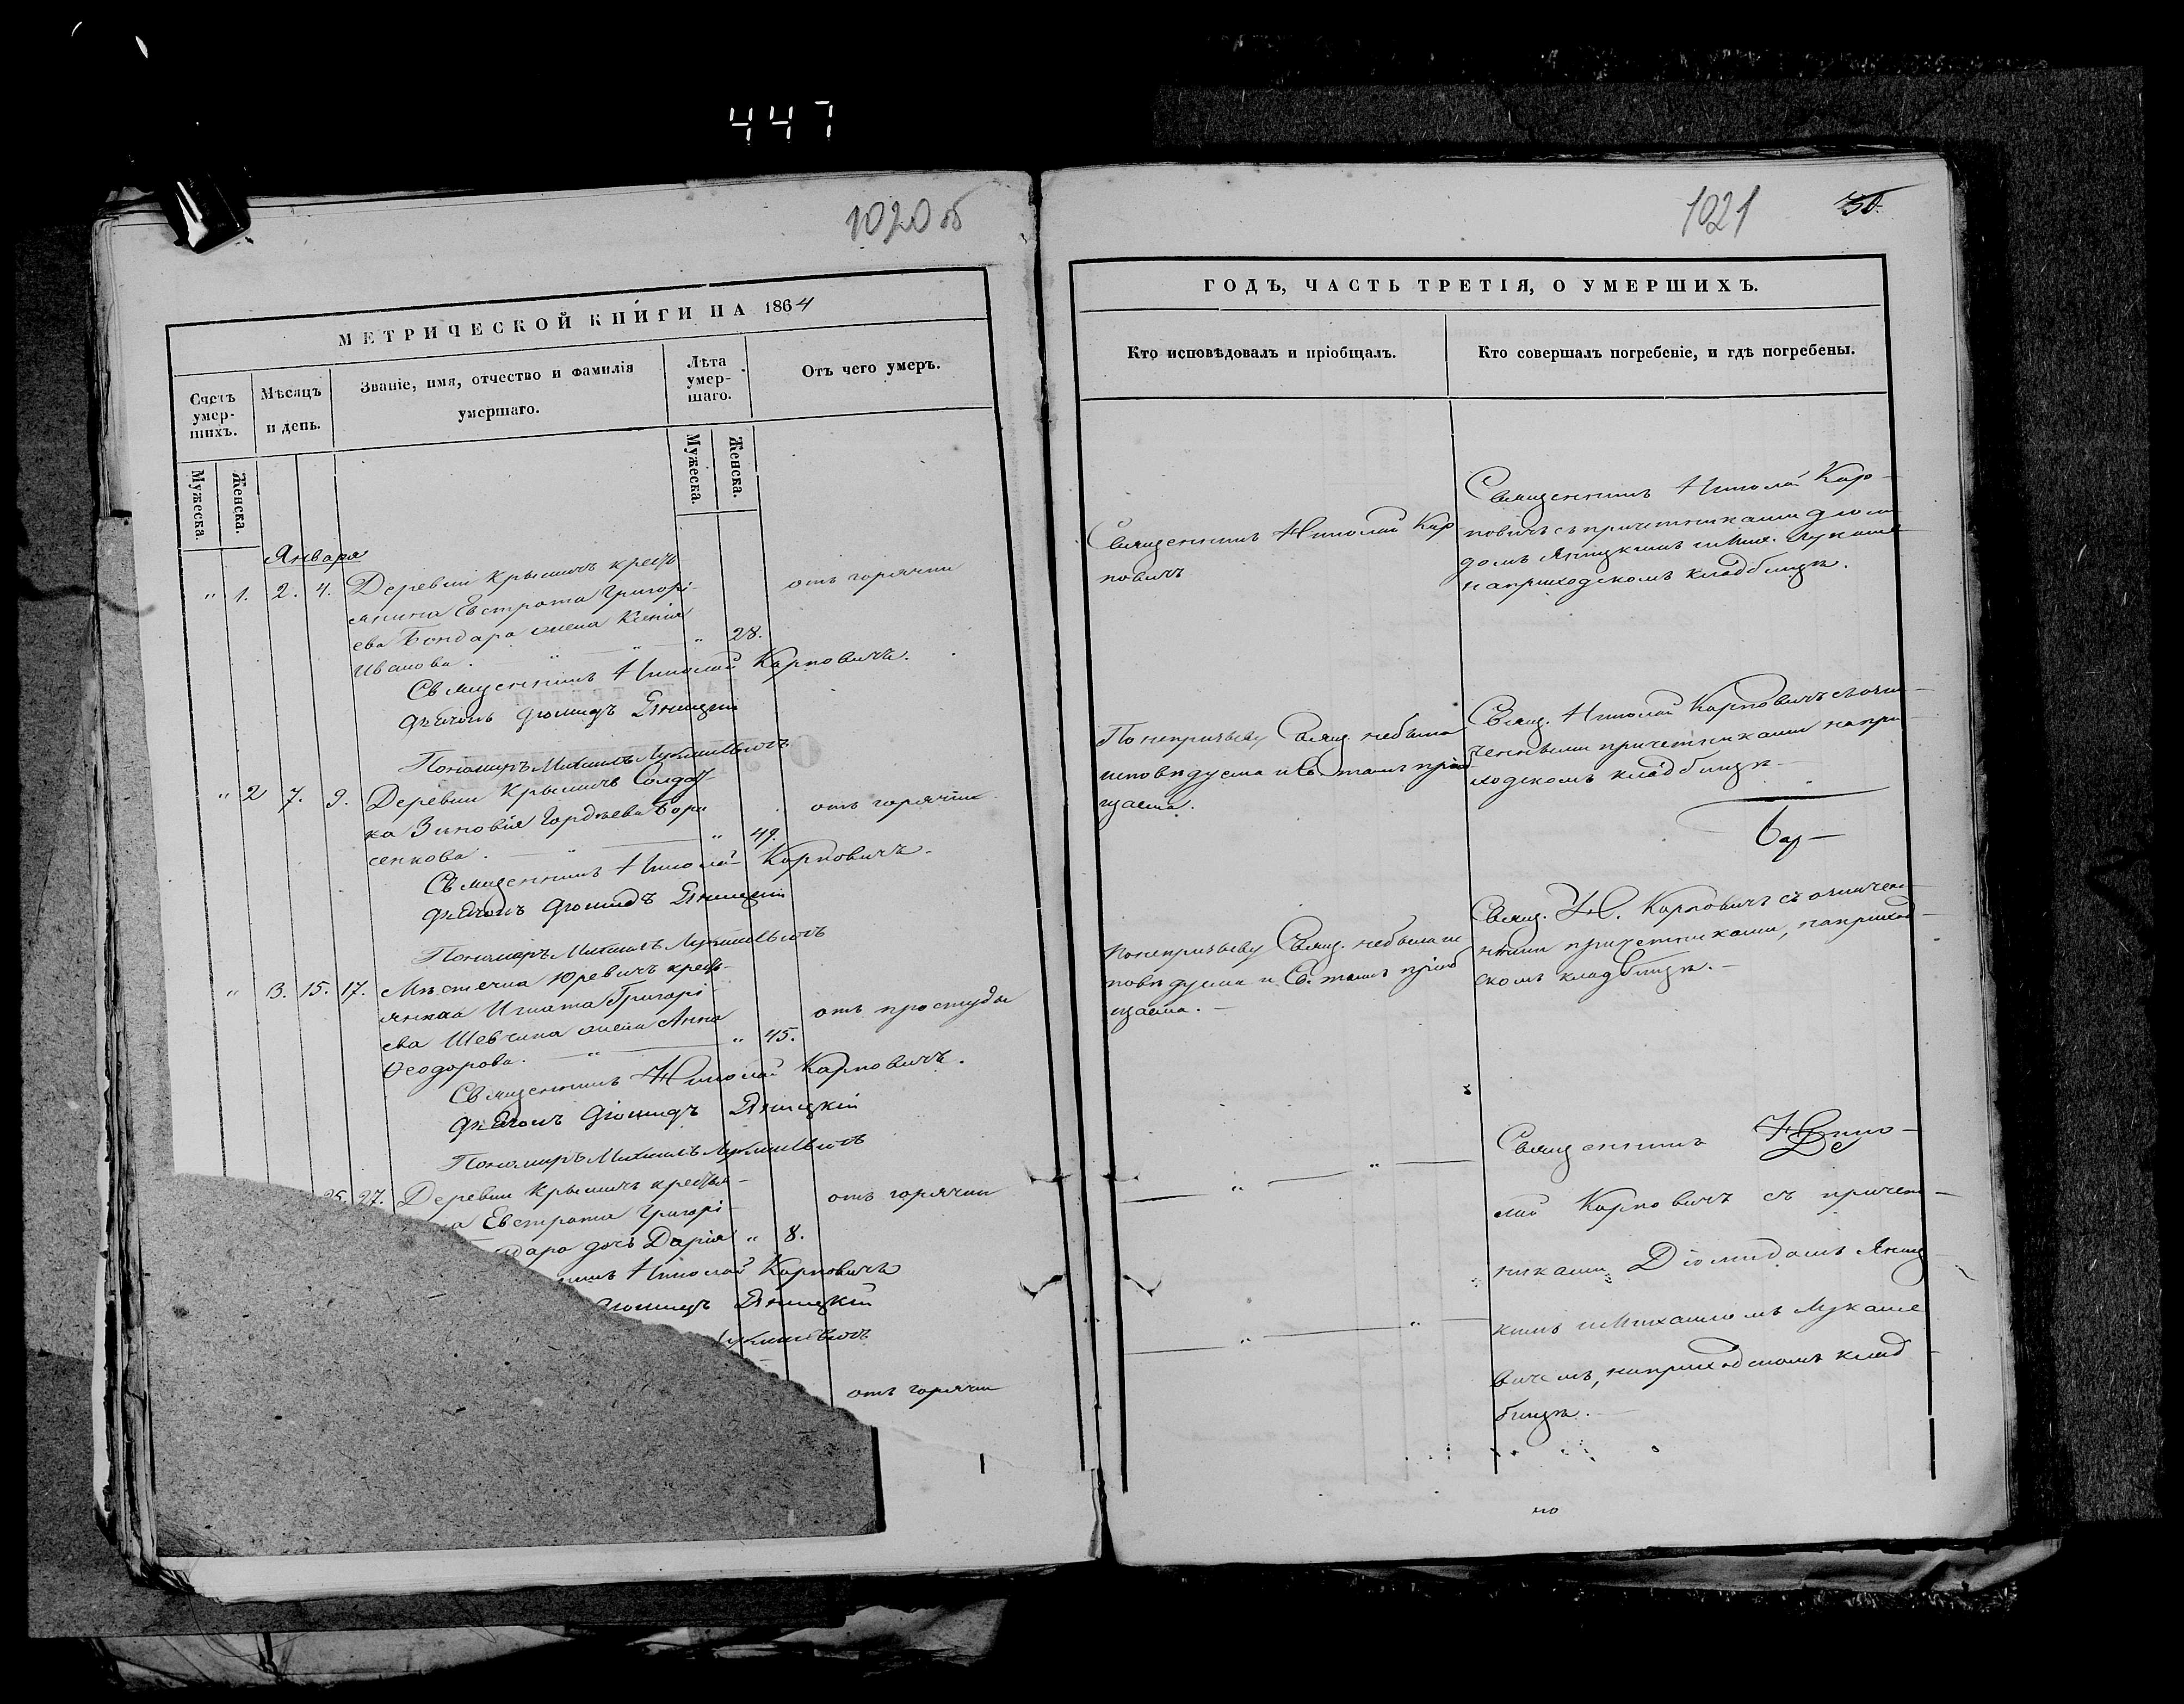 447
1020 об
МЕТРИЧЕСКОЙ КНИГИ НА 1864
Счетъ умер-шихъ.
Мѣсяцъ и день.
Званіе, имя, отчество и фамилія умершаго.
Лѣта умер-шаго.
Отъ чего умеръ.
Мужеска.
Женска.
Мужеска.
Женска.
Января
" 1. 2. 4. Деревни Крышичъ кресть
янина Евстрата Григорі-
ева Бондара жена Ксенія
Иванова. " " 28. отъ горячки
Священникъ Николай Карповичъ.
Дьячокъ Діомидъ Яницкій
Пономарь Михаилъ Лукашевичъ
" 2 7. 9. Деревни Крышичъ Солдат
ка Зиновія Гордѣева Бори
сенкова. " " 49. отъ горячки
Священникъ Николай Карповичъ.
Дьячокъ Діомидъ Яницкій
Пономарь Михаилъ Лукашевичъ
" 3. 15. 17. Мѣстечка Юревичъ кресть-
янина Игната Григорі
ева Шевчика жена Анна
Ѳеодорова. " " 45. отъ простуды
Священникъ Николай Карповичъ.
Дьячокъ Діомидъ Яницкій
Пономарь Михаилъ Лукашевичъ
25. 27. Деревни Крышичъ крестья-
на Евстрата Григорі
ндара дочь Дарія " 8. отъ горячки
никъ Николай Карповичъ
Діомидъ Яницкій
Лукашевичъ
отъ горячки
1021
ГОДЪ, ЧАСТЬ ТРЕТІЯ, О УМЕРШИХЪ.
Кто исповѣдовалъ и пріобщалъ.
Кто совершалъ погребеніе, и гдѣ погребены.
Священникъ Николай Кар
повичъ
Священникъ Николай Кар-
повичъ съ причетниками Діоми
домъ Яницкимъ и Мих. Лукаше
на приходскомъ кладбищѣ.
По непризыву Свящ. небыла
исповѣдуема и Св. таинъ пріоб
щаема.
Свящ. Николай Карповичъ съ озна-
ченными причетниками на при-
ходскомъ кладбищѣ.
По непризыву Свящ. небыла ис
повѣдуема и Св. таинъ пріоб
щаема. -
Свящ. Н. Карповичъ съ означен-
ными причетниками, на приход-
скомъ кладбищѣ. -
Священникъ Нико-
лай Карповичъ съ причет-
никами Діомидомъ Яниц-
кимъ и Михаиломъ Лукаше
вичемъ, на приходскомъ клад
бищѣ. -